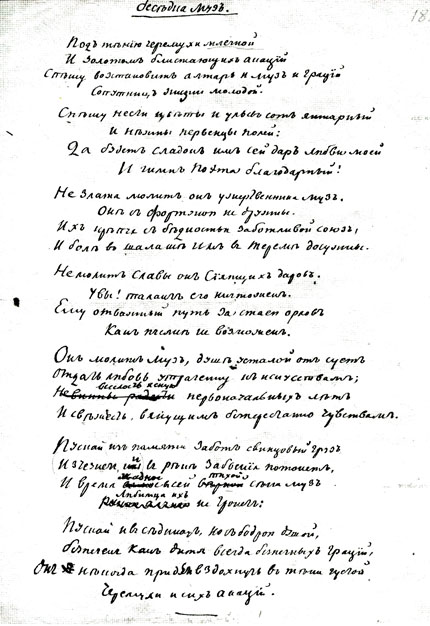 Бесѣдка Музъ.
18
Подъ тѣнію черемухи млечной
И золотомъ блистающихъ акацій
Спѣшу возстановить алтарь и Музъ и Грацій
Сопутницъ жизни молодой.
Спѣшу нести цвѣты и ульевъ сотъ янтарный
И нѣжны первенцы полей:
Да будетъ сладокъ имъ сей даръ любви моей
И гимнъ Поэта благодарный!
Не злата молитъ онъ у жертвенника Музъ.
Онѣ съ фортуною не дружны.
Ихъ крѣпче съ бѣдностью заботливой союзъ,
И болѣ въ шалашѣ чѣмъ въ теремѣ досужны.
Не молитъ Славы онъ Сіяющихъ даровъ.
Увы! талантъ его ничтоженъ.
Ему отважный путь за стаею орловъ
Какъ пчелкѣ не возможенъ.
Онъ молитъ Музъ, душѣ усталой отъ суетъ
Отдать любовь утраченну къ искусствамъ;
Веселость ясную первоначальныхъ лѣтъ
И свѣжесть вянущимъ безперестанно чувствамъ.
Пускай изъ памяти заботъ свинцовый грузъ
Изчезнетъ, и въ рѣкѣ забвенія потонетъ,
И время жадное въ сей тихой сѣни Музъ
Любимца ихъ не тронетъ:
Пускай и въ сединахъ, но съ бодрой душой,
Безпеченъ какъ дитя всегда безпечныхъ Грацій,
Онъ нѣкогда придетъ вздохнуть въ тѣни густой
Черемухи и сихъ акацій.